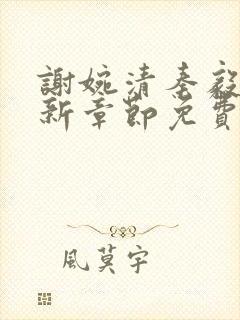 謝婉清秦毅
新章節免費
風莫宇